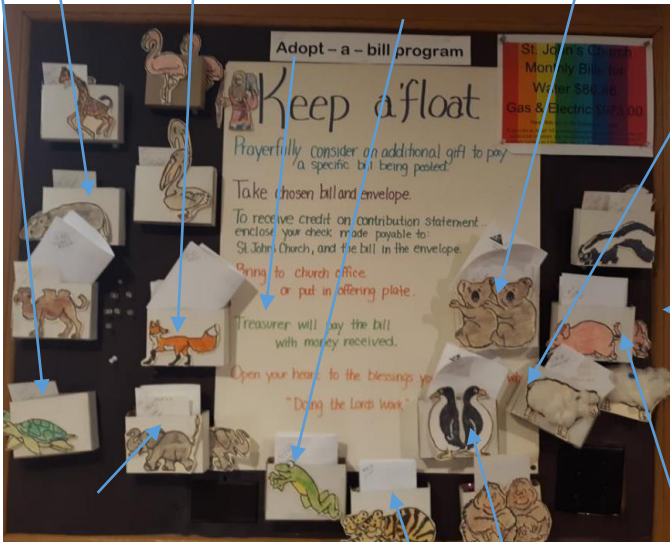 Adopt – a – bill program
St. John's Church
Monthly Bills for
Water $80.
Gas & Electric
Keep a'float
Prayerfully consider an additional gift to pay
a specific bill being posted.
Take chosen bill and envelope.
To receive credit on contribution statement
enclose your check made payable to:
St. John Church, and the bill in the envelope.
Bring to church office
or put in offering plate.
Treasurer will pay the bill
with money received.
Open your heart to the blessings
"Doing the Lords Work"